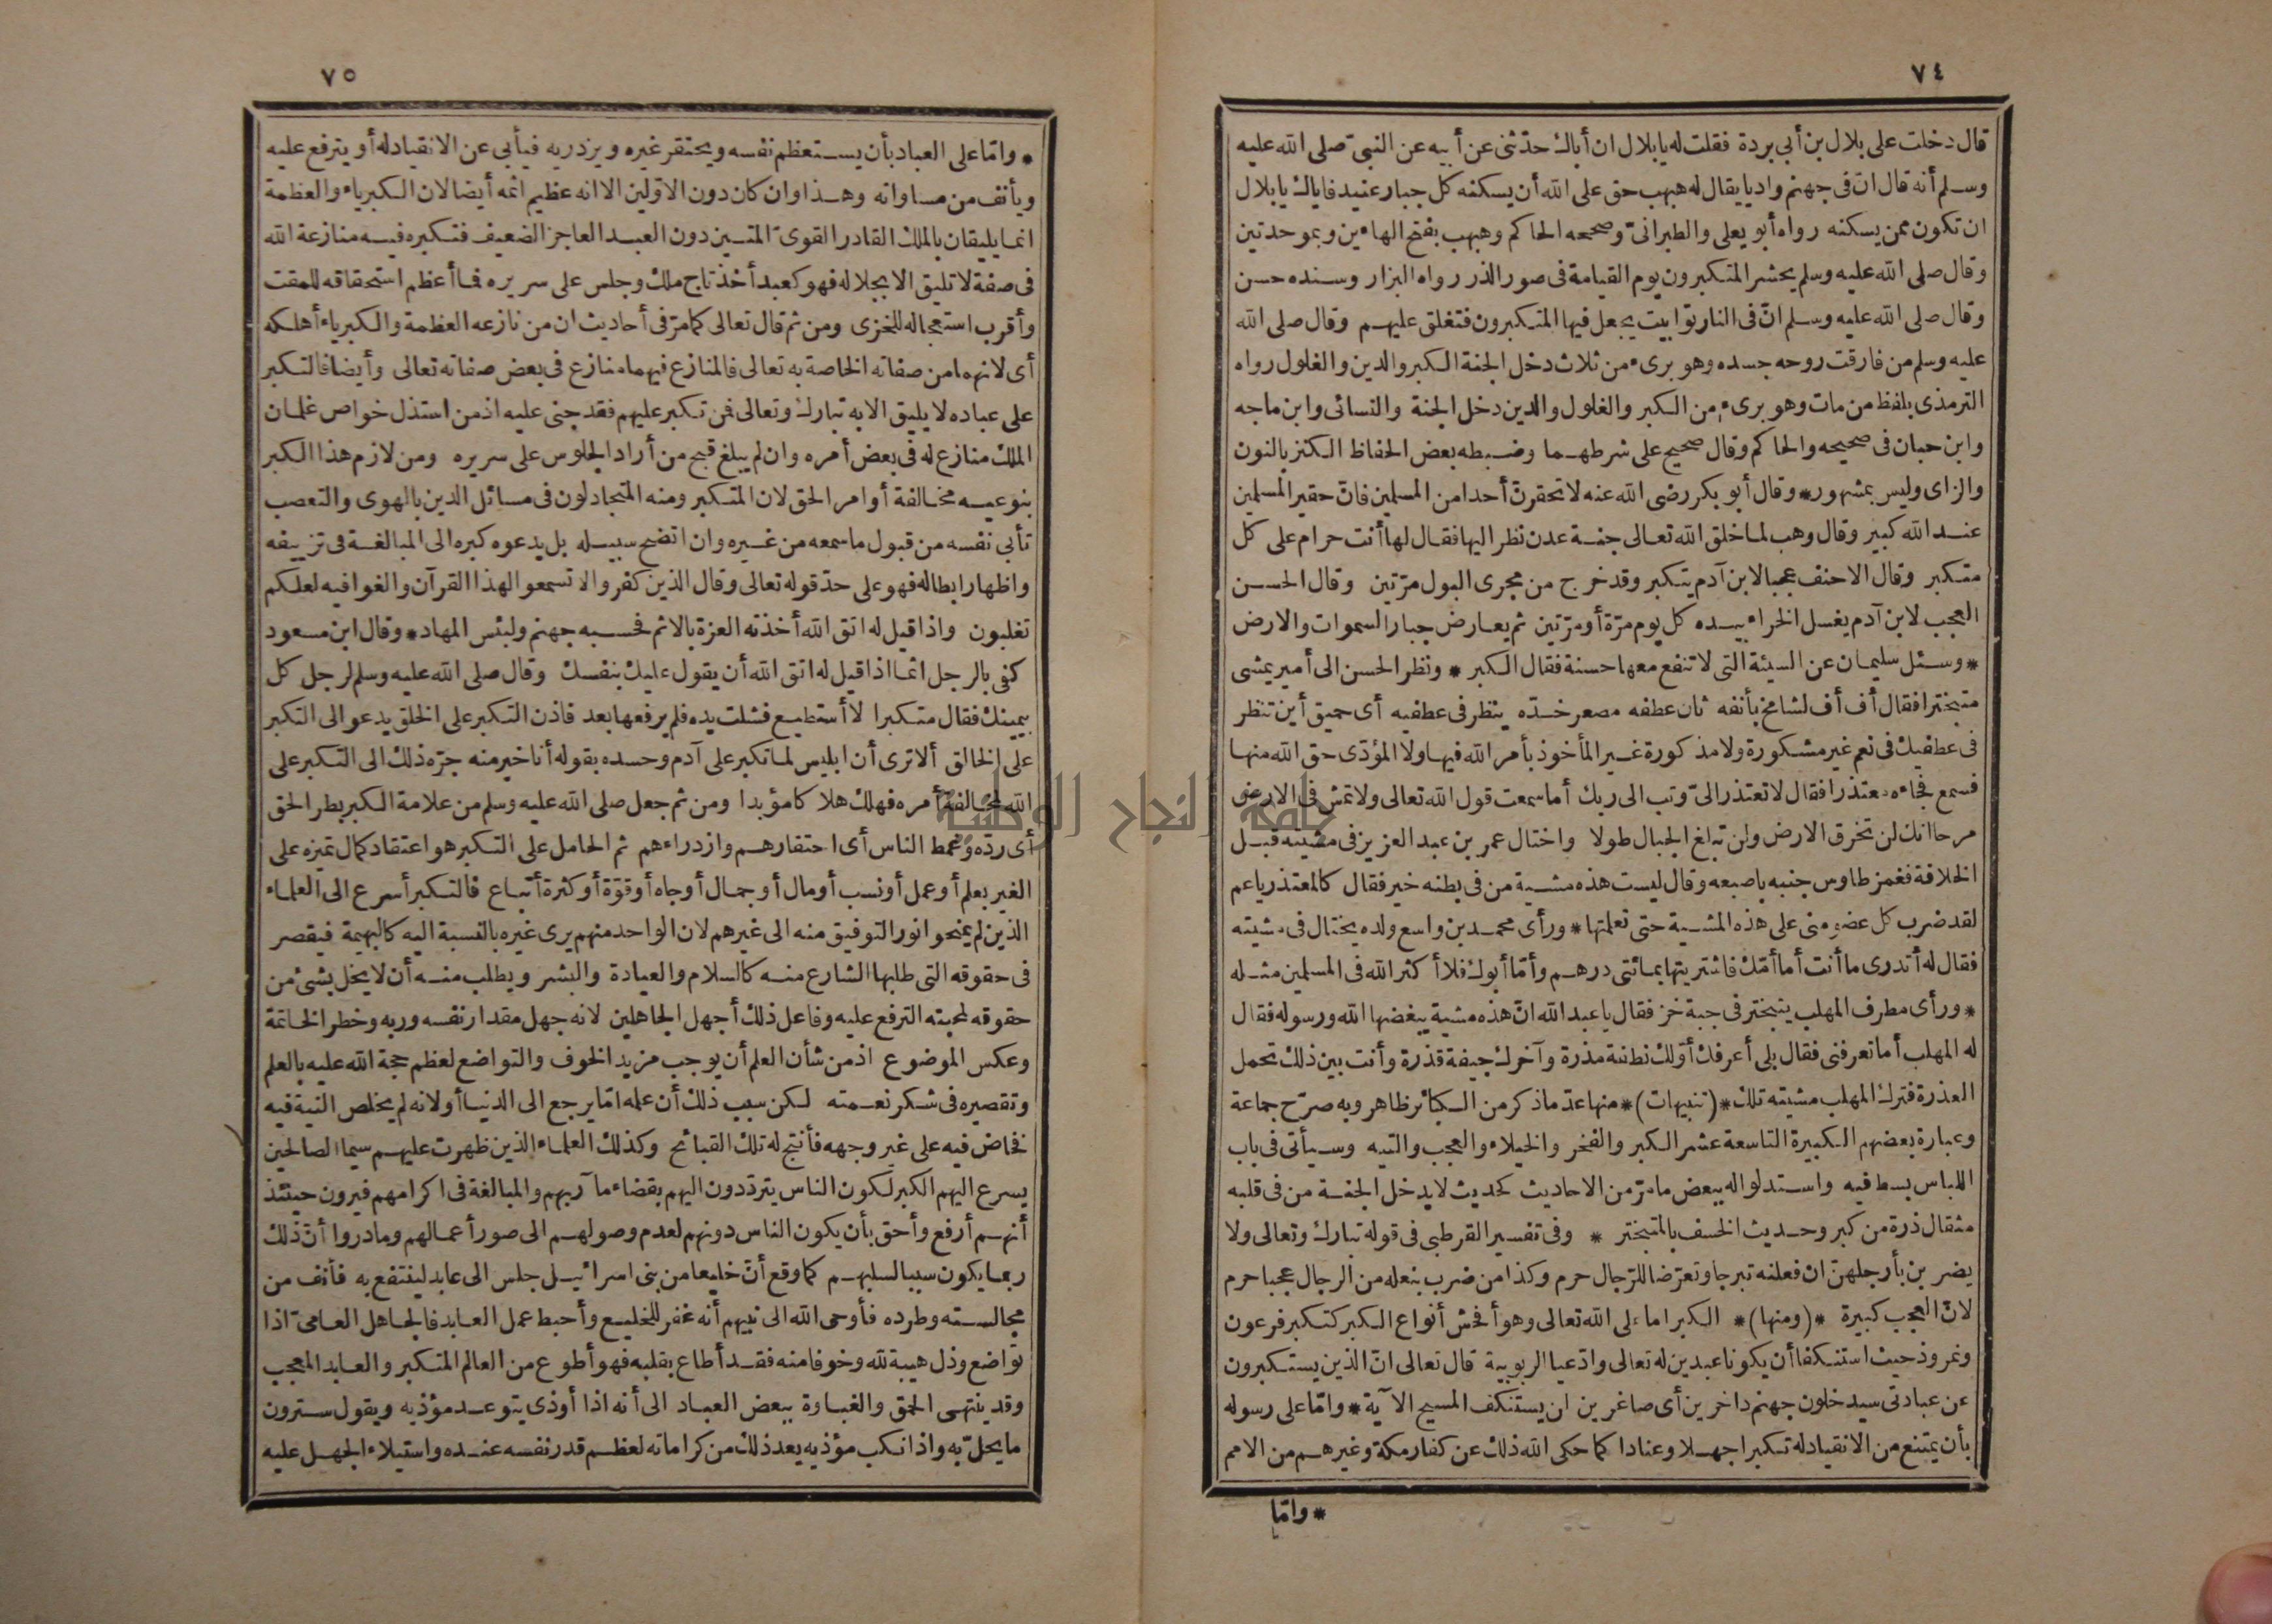 ٧٤
قال دخلت على بلال بن أبي بردة فقلت له يا بلال ان أباك حدّثني عن أبيه عن النبيّ صلى الله عليه
وسلم أنه قال انّ في جهنم واديا يقال له هبهب حق على الله أن يسكنه كل جبار عنيد فاياك يا بلال
ان تكون ممن يسكنه رواه أبو يعلى والطبرانيّ وصححه الحاكم وهبهب بفتح الهاءين وبموحدتين
وقال صلى الله عليه وسلم يحشر المتكبرون يوم القيامة في صور الذر رواه البزار وسنده حسن
وقال صلى الله عليه وسلم انّ في النار توابيت يجعل فيها المتكبرون فتغلق عليهم وقال صلى الله
عليه وسلم من فارقت روحه جسده وهو بريء من ثلاث دخل الجنة الكبر والدين والغلول رواه
الترمذي بلفظ من مات وهو بريء من الكبر والغلول والدين دخل الجنة والنسائى وابن ماجه
وابن حبان في صحيحه والحاكم وقال صحيح على شرطهما وضبطه بعض الحفاظ الكنز بالنون
والزاى وليس بمشهور * وقال أبو بكر رضى الله عنه لا تحقرنّ أحدا من المسلمين فانّ حقير المسلمين
عند الله كبير وقال وهب لما خلق الله تعالى جنة عدن نظر اليها فقال لها أنت حرام على كل
متكبر وقال الاحنف عجبا لابن آدم يتكبر وقد خرج من مجرى البول مرّتين وقال الحسن
العجب لابن آدم يغسل الخراء بيده كل يوم مرّة أو مرّتين ثم يعارض جبار السموات والارض
* وسئل سليمان عن السيئة التى لا تنفع معها حسنة فقال الكبر * ونظر الحسن الى أمير يمشى
متبخترا فقال أف أف لشامخ بأنفه ثان عطفه مصعر خدّه ينظر في عطفيه أى حميق أين تنظر
في عطفيك في نعم غير مشكورة ولا مذكورة غير المأخوذ بأمر الله فيها ولا المؤدّى حق الله منها
فسمع فجاءه يعتذر افقال لا تعتذر الىّ وتب الى ربك أما سمعت قول الله تعالى ولا تمش في الارض
مرحا انك لن تخرق الارض ولن تبلغ الجبال طولا واختال عمر بن عبد العزيز في مشيته قبل
الخلافة فغمز طاوس جنبه باصبعه وقال ليست هذه مشية من في بطنه خير فقال كالمعتذر يا عم
لقد ضرب كل عضو مني على هذه المشية حتى تعلمتها * ورأى محمد بن واسع ولده يختال في مشيته
فقال له أتدرى ما أنت أما أمّك فاشتريتها بمائتى درهم وأمّا أبوك فلا أكثر الله في المسلمين مثله
* ورأى مطرف المهلب يتبختر في جبة خز فقال يا عبد الله انّ هذه مشية يبغضها الله ورسوله فقال
له المهلب أما تعرفني فقال بلى أعرفك أوّلك نطفة مذرة وآخرك جيفة قذرة وأنت بين ذلك تحمل
العذرة فترك المهلب مشيته تلك * (تنبيهات) * منها عدّ ما ذكر من الكبائر ظاهر وبه صرّح جماعة
وعبارة بعضهم الكبيرة التاسعة عشر الكبر والفخر والخيلاء والعجب والتيه وسيأتى في باب
اللباس بسط فيه واستدلوا له ببعض ما مرّ من الاحاديث كحديث لا يدخل الجنة من في قلبه
مثقال ذرة من كبر وحديث الخسف بالمتبختر * وفي تفسير القرطبى في قوله تبارك وتعالى ولا
يضربن بأرجلهنّ ان فعلنه تبرجا وتعرّضا للرّجال حرم وكذا من ضرب بنعله من الرجال عجبا حرم
لانّ العجب كبيرة * (ومنها) * الكبر اما على الله تعالى وهو أفحش أنواع الكبر كتكبر فرعون
ونمروذ حيث استنكفا أن يكونا عبدين له تعالى وادّعيا الربوبية قال تعالى انّ الذين يستكبرون
عن عبادتى سيدخلون جهنم داخرين أى صاغرين ان يستنكف المسيح الآية * وامّا على رسوله
بأن يمتنع من الانقياد له تكبرا جهلا وعنادا كما حكى الله ذلك عن كفار مكة وغيرهم من الامم
* وامّا
٧٥
* وامّا على العباد بأن يستعظم نفسه ويحتقر غيره ويزدريه فيأبى عن الانقياد له أو يترفع عليه
ويأنف من مساواته وهذا وان كان دون الاوّلين الا انه عظيم اثمه أيضا لان الكبرياء والعظمة
انما يليقان بالملك القادر القوىّ المتين دون العبد العاجز الضعيف فتكبره فيه منازعة الله
في صفة لا تليق الا بجلاله فهو كعبد أخذ تاج ملك وجلس على سريره فما أعظم استحقاقه للمقت
وأقرب استعجاله للخزى ومن ثم قال تعالى كما مرّ في أحاديث ان من نازعه العظمة والكبرياء أهلكه
أى لانهما من صفاته الخاصة به تعالى فالمنازع فيهما منازع في بعض صفاته تعالى وأيضا فالتكبر
على عباده لا يليق الا به تبارك وتعالى فمن تكبر عليهم فقد جنى عليه اذ من استذل خواص غلمان
الملك منازع له في بعض أمره وان لم يبلغ قبح من أراد الجلوس على سريره ومن لازم هذا الكبر
بنوعيه مخالفة أوامر الحق لان المتكبر ومنه المتجادلون في مسائل الدين بالهوى والتعصب
تأبى نفسه من قبول ما سمعه من غيره وان اتضح سبيله بل يدعوه كبره الى المبالغة في تزييفه
واظهار ابطاله فهو على حدّ قوله تعالى وقال الذين كفروا لا تسمعوا لهذا القرآن والغوا فيه لعلكم
تغلبون واذا قيل له اتق الله أخذته العزة بالاثم فحسبه جهنم ولبئس المهاد * وقال ابن مسعود
كفى بالرجل اثما اذا قيل له اتق الله أن يقول عليك بنفسك وقال صلى الله عليه وسلم لرجل كل
بيمينك فقال متكبرا لا أستطيع فشلت يده فلم يرفعها بعد فاذن التكبر على الخلق يدعو الى التكبر
على الخالق ألا ترى أن ابليس لما تكبر على آدم وحسده بقوله أنا خير منه جرّه ذلك الى التكبر على
الله لمخالفة أمره فهلك هلاكا مؤبدا ومن ثم جعل صلى الله عليه وسلم من علامة الكبر بطر الحق
أى ردّه وغمط الناس أى احتقارهم وازدراءهم ثم الحامل على التكبر هو اعتقاد كمال تميزه على
الغير بعلم أو عمل أو نسب أو مال أو جمال أو جاه أو قوّة أو كثرة أتباع فالتكبر أسرع الى العلماء
الذين لم يمنحوا نور التوفيق منه الى غيرهم لان الواحد منهم يرى غيره بالنسبة اليه كالبهيمة فيقصر
في حقوقه التى طلبها الشارع منه كالسلام والعيادة والبشر ويطلب منه أن لا يخل بشئ من
حقوقه لمحبته الترفع عليه وفاعل ذلك أجهل الجاهلين لانه جهل مقدار نفسه وربه وخطر الخاتمة
وعكس الموضوع اذ من شأن العلم أن يوجب مزيد الخوف والتواضع لعظم حجة الله عليه بالعلم
وتقصيره في شكر نعمته لكن سبب ذلك أن علمه امّا يرجع الى الدنيا أو لانه لم يخلص النية فيه
فخاض فيه على غير وجهه فأنتج له تلك القبائح وكذلك العلماء الذين ظهرت عليهم سيما الصالحين
يسرع اليهم الكبر لكون الناس يتردّدون اليهم بقضاء مآربهم والمبالغة في اكرامهم فيرون حينئذ
أنهم أرفع وأحق بأن يكون الناس دونهم لعدم وصولهم الى صور أعمالهم وما دروا أنّ ذلك
ربما يكون سببا لسلبهم كما وقع أنّ خليعا من بنى اسرائيل جلس الى عابد لينتفع به فأنف من
مجالسته وطرده فأوحى الله الى نبيهم أنه غفر للخليع وأحبط عمل العابد فالجاهل العامىّ اذا
تواضع وذل هيبة لله وخوفا منه فقد أطاع بقلبه فهو أطوع من العالم المتكبر والعابد المعجب
وقد ينتهى الحمق والغباوة ببعض العباد الى أنه اذا أوذى يتوعد مؤذيه ويقول سترون
ما يحلّ به واذا نكب مؤذيه يعد ذلك من كراماته لعظم قدر نفسه عنده واستيلاء الجهل عليه
جامعة النجاح الوطنية